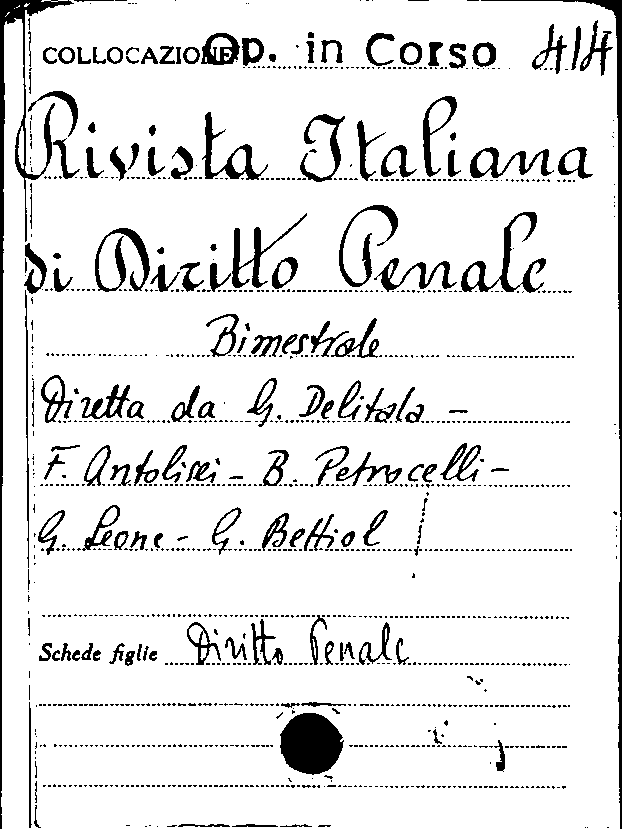 COLLOCAZIONE Op. in Corso 414
Rivista Italiana
di Diritto Penale
Bimestrale
Diretta da G. Delitala -
F. Antolisei - B. Petrocelli -
G. Leone - G. Bettiol
Schede figlie Diritto Penale